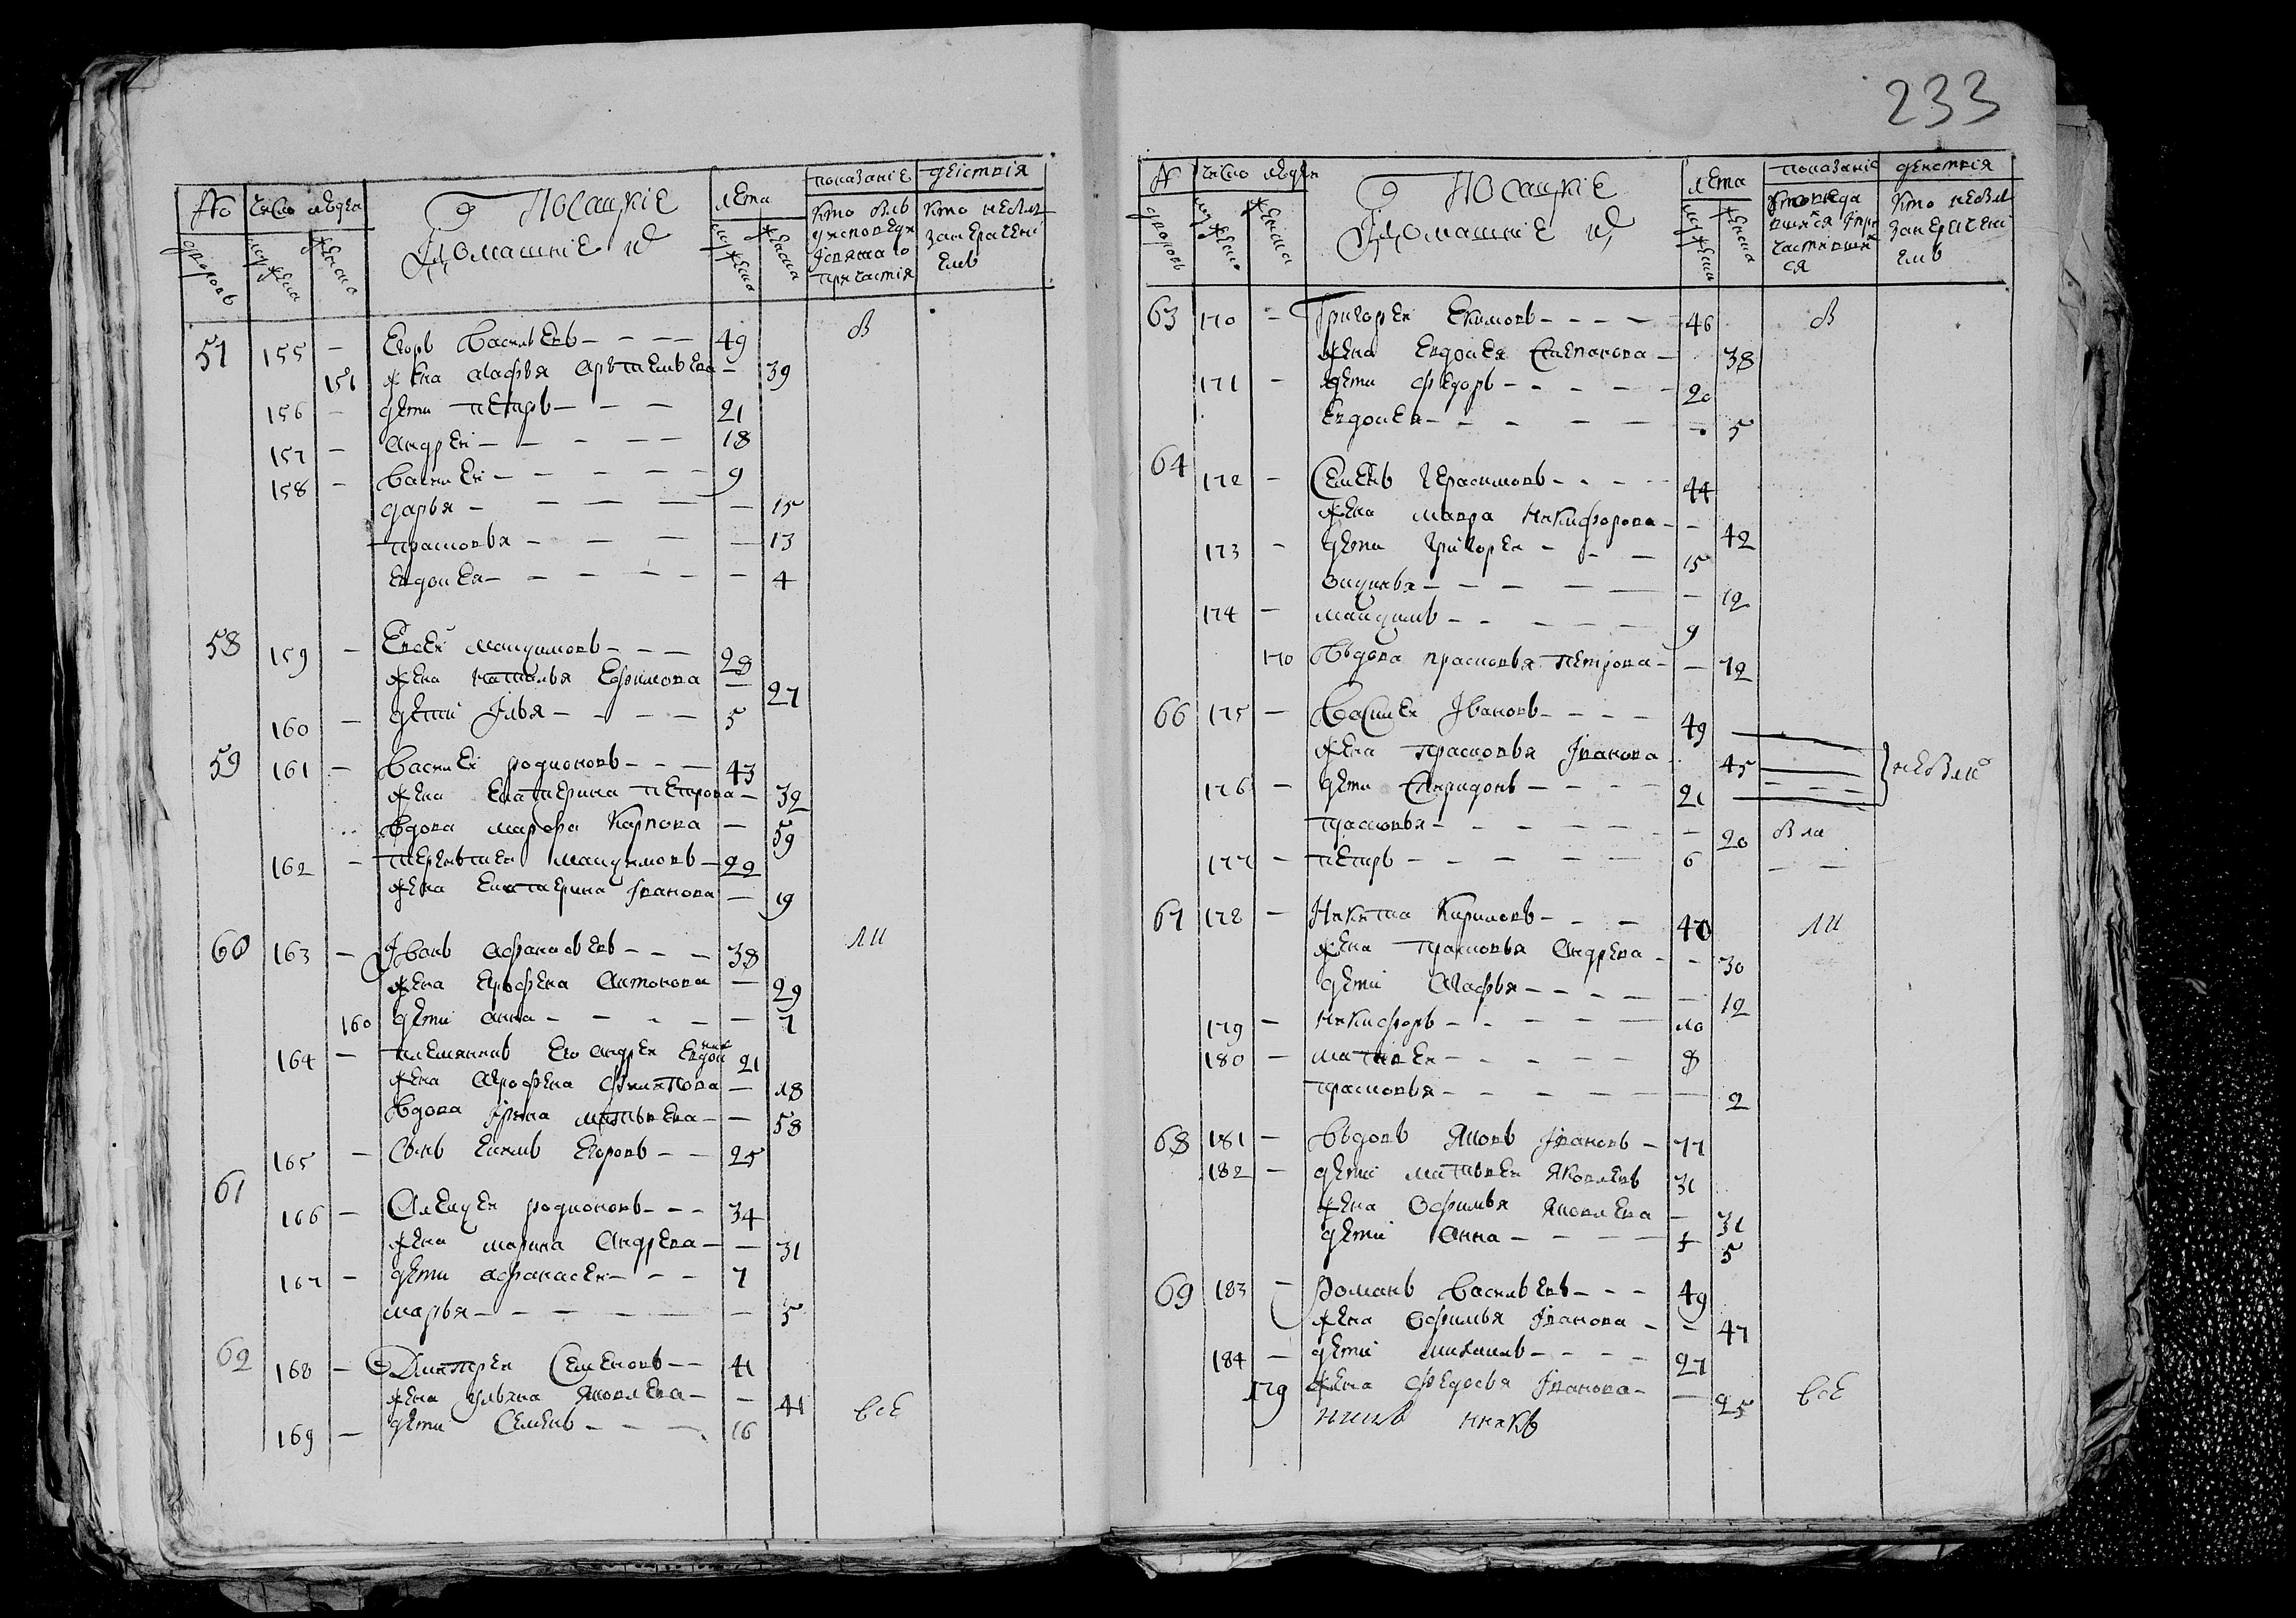 233
№ число людеи Посацкие лета показание деиствия
дворовъ мужеска женска и домашние их мужеска женска кто былъ у исповеди и святаго причастия кто не былъ за нерачениемъ
57 155 — Егоръ Васильевъ — — — — 49 Б
151 жена Агафья Артемьева — 39
156 — дети Петаръ — — — 21
157 — Андреи — — — — — 18
158 — Василеи — — — — — 9
Дарья — — — — — 15
Прасковья — — — — 13
Евдокея — — — — — — 4
58 159 — Евсеи Макчимовъ — — — 28
жена Наталья Ефимова — 27
160 — дети Илья — — — — 5
59 161 — Василеи Родионовъ — — — 43
жена Екатерина Петрова — 32
вдова Марфа Карпова — 59
162 — Терентеи Макчимовъ — 22
жена Екатерина Иванова — 19
60 163 — Иванъ Афанасьевъ — — — 38 ЛИ
жена Ерофена Антонова — 29
160 дети Анна — — — — — 7
164 — племянникъ Его Андреи 21
жена Агрофена Филипова — 18
вдова Ирина Матвеева — — 58
165 — сынъ Екимъ Егоровъ — — 25
61
166 — Алекчеи Родионовъ — — — 34
жена Марина Андреева — — 31
167 — дети Афанасеи — — — 7
Марья — — — — — — 5
62 168 — Дмитреи Семеновъ — — 41
жена Ульяна Яковлева — — 41 всЕ
169 — дети Семенъ — — — — 16
№ число людеи Посацкие лета показание деиствия
дворовъ мужеска женска и домашние их мужеска женска исповедавшияся и причастившияся кто не былъ за нерачениемъ
63 170 — Григореи Екимовъ — — — — 46 Б
жена Евдокея Степанова — 38
171 — дети Федоръ — — — — — 20
Евдокея — — — — — — 5
64
172 — Семенъ Герасимовъ — — — — 44
жена Мавра Никифорова — — 42
173 — дети Григореи — — — 15
— — — — — — 12
174 — Макчимъ — — — — — 9
170 вьдова Прасковья Петрова — — 72
66 175 — Василеи Ивановъ — — — — 49
жена Прасковья Иванова 45 не были
176 — дети Спиридонъ — — — — 21
Прасковья — — — — — — 20 была
177 — Петаръ — — — — — 6 — —
67 178 — Никита Кириловъ — — — 40 ЛИ
жена Прасковья Андреева — — 30
дети Агафья — — — — — 12
179 — Никифоръ — — — — — 10
180 — Матвеи — — — — — 8
Прасковья — — — — — — 2
68 181 — вьдовъ Яковъ Ивановъ — 77
182 — дети Матвеи Яковлевъ 31
жена Офимья Яковлева — 31
дети Анна — — — — 5
69 183 — Романъ Васильевъ — — — 49
жена Офимья Иванова — — 47
184 — дети Михаилъ — — — — 27
179 жена Федосья Иванова — — 25 всЕ